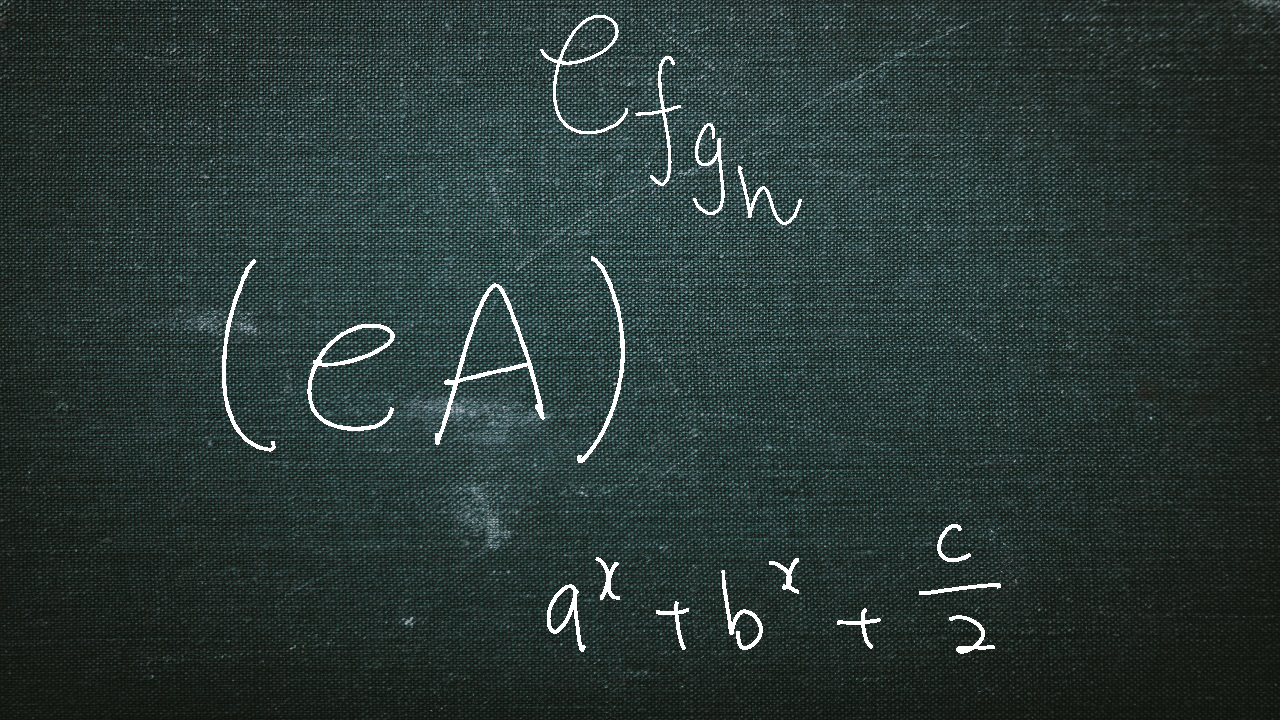 e_{f_{g_h}}
(eA)
a^x + b^x + \frac{c}{2}